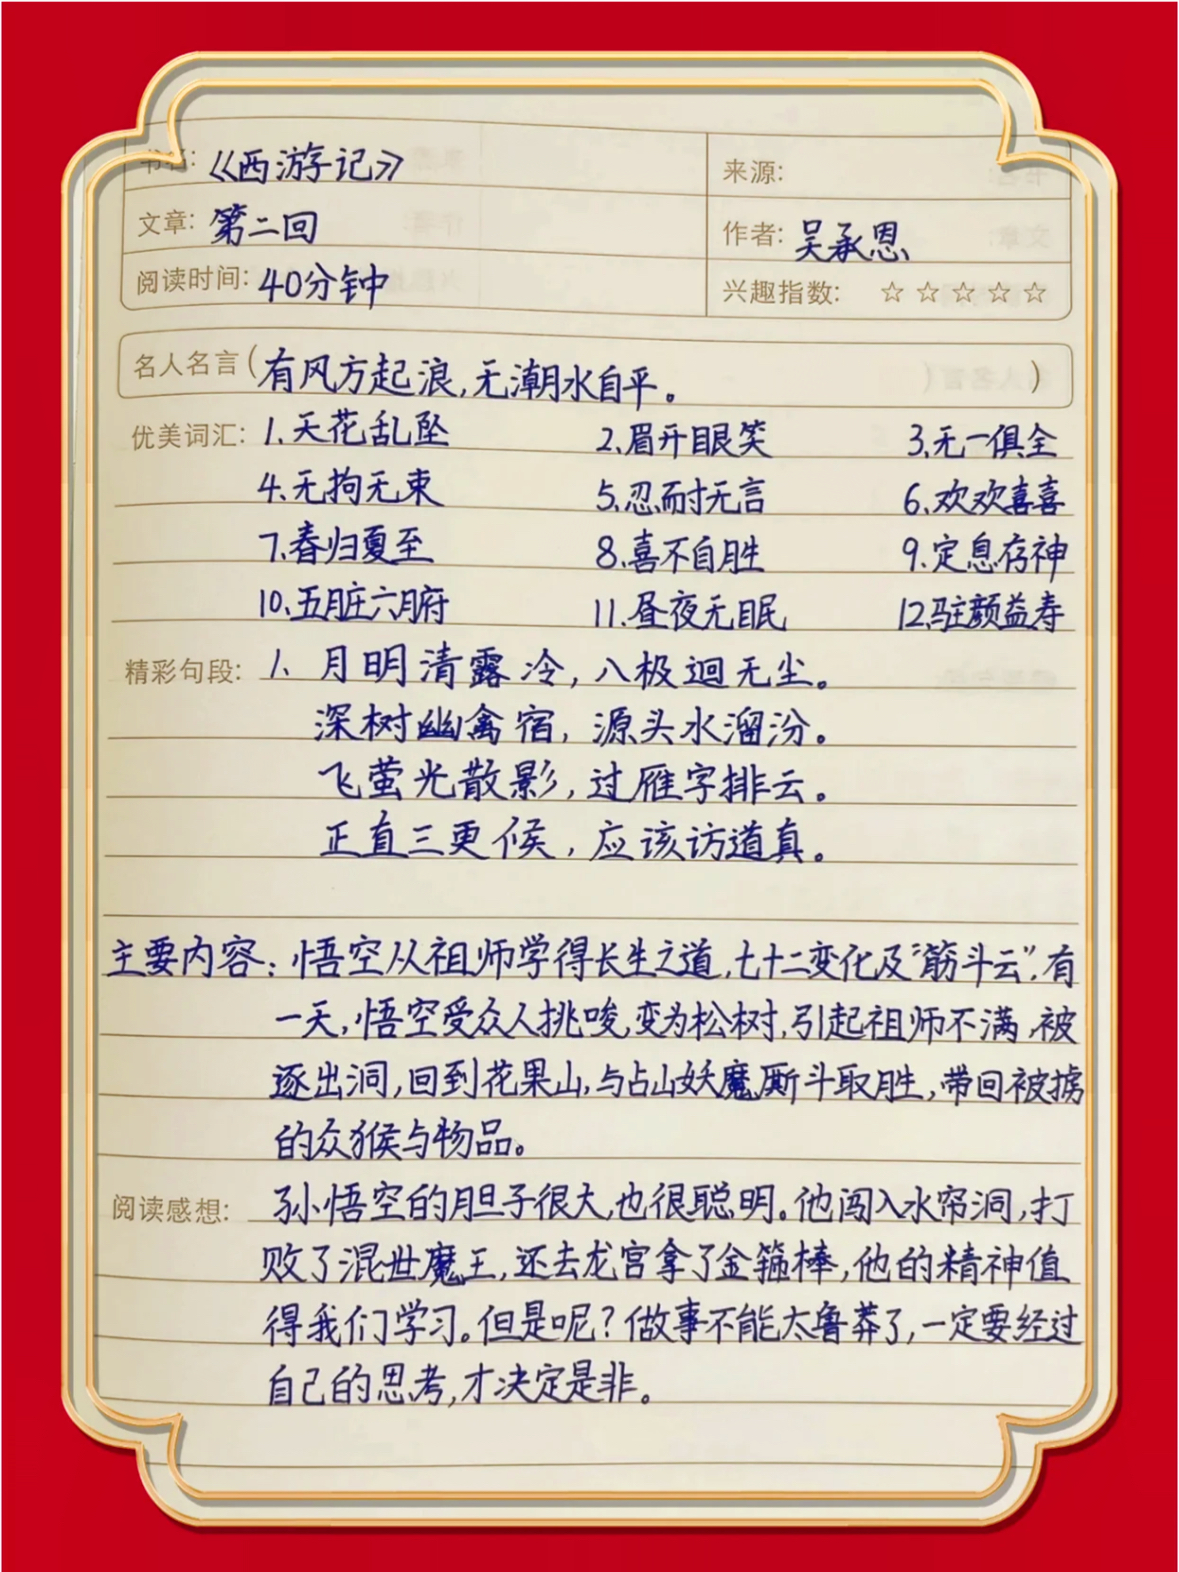 书名: 《西游记》
来源:
文章: 第二回
作者: 吴承恩
阅读时间: 40分钟
兴趣指数: ☆☆☆☆☆
名人名言(有风方起浪,无潮水自平。)
优美词汇: 1、天花乱坠 2、眉开眼笑 3、无一俱全
4、无拘无束 5、忍耐无言 6、欢欢喜喜
7、春归夏至 8、喜不自胜 9、定息存神
10、五脏六腑 11、昼夜无眠 12、驻颜益寿
精彩句段: 1、月明清露冷,八极迥无尘。
深树幽禽宿,源头水溜汾。
飞萤光散影,过雁字排云。
正直三更候,应该访道真。
主要内容:悟空从祖师学得长生之道,七十二变化及“筋斗云”.有
一天,悟空受众人挑唆,变为松树,引起祖师不满,被
逐出洞,回到花果山,与占山妖魔厮斗取胜,带回被掳
的众猴与物品。
阅读感想: 孙悟空的胆子很大,也很聪明。他闯入水帘洞,打
败了混世魔王,还去龙宫拿了金箍棒,他的精神值
得我们学习。但是呢?做事不能太鲁莽了,一定要经过
自己的思考,才决定是非。